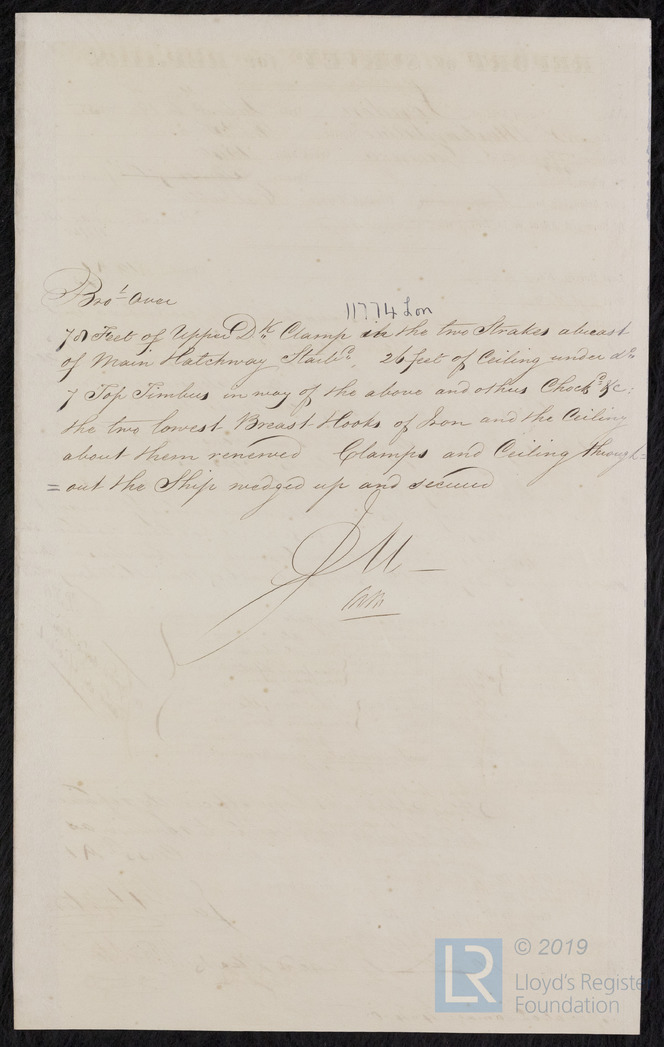 Bro.t Over
11774 Lon
78 Feet of Upper Dk Clamp in the two Strakes abreast
of Main Hatchway Starbd. 26 feet of Ceiling under do.
7 Top Timbers in way of the above and others Chockd &c:
the two lowest Breast Hooks of Iron and the Ceiling
about them renewed Clamps and Ceiling through=
=out the Ship wedged up and secured
J M
LR
© 2019
Lloyd's Register
Foundation